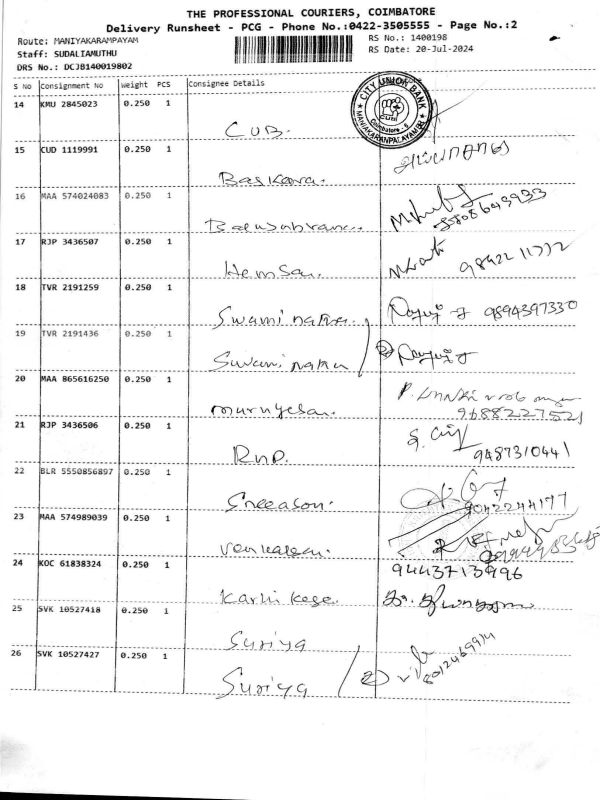 THE PROFESSIONAL COURIERS, COIMBATORE
Delivery Runsheet - PCG - Phone No.:0422-3505555 - Page No.:2
Route: MANIYAKARAMPAYAM
RS No.: 1400198
Staff: SUDALIAMUTHU
RS Date: 20-Jul-2024
DRS No.: DCJB140019802
S No Consignment No Weight PCS Consignee Details
CITY UNION BANK
CUB
Coimbatore
14 KMU 2845023 0.250 1
CUB.
15 CUD 1119991 0.250 1
Baskara.
16 MAA 574024083 0.250 1
17 RJP 3436507 0.250 1
Hemsa.
9842211772
18 TVR 2191259 0.250 1
Swaminatha. 9894397330
19 TVR 2191436 0.250 1
Swaminatha 2
20 MAA 865616250 0.250 1
Murugesan.
9688227521
21 RJP 3436506 0.250 1
RNP.
9487310441
22 BLR 5550856897 0.250 1
Sreeason.
9042244177
23 MAA 574989039 0.250 1
24 KOC 61838324 0.250 1
9443713996
25 SVK 10527418 0.250 1
Suriya
26 SVK 10527427 0.250 1
Suriya 2